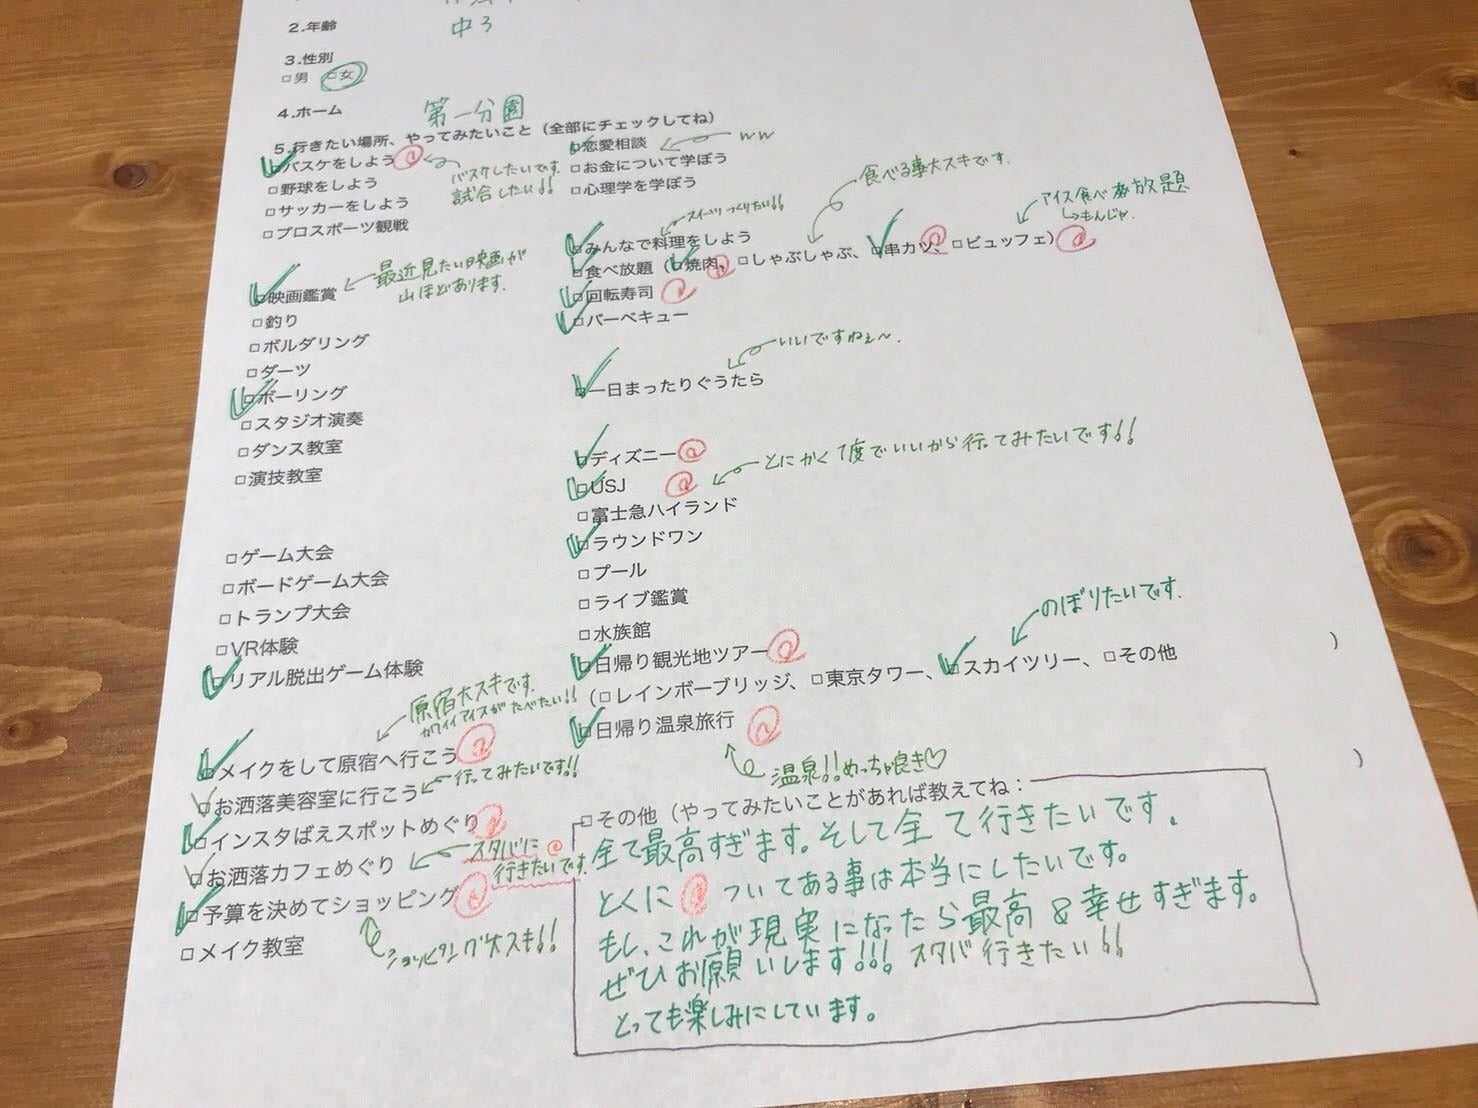 2.年齢 中3
3.性別
□男 □女
4.ホーム 第一分園
5.行きたい場所、やってみたいこと（全部にチェックしてね）
□バスケをしよう
バスケしたいです。
試合したい!!
□野球をしよう
□サッカーをしよう
□プロスポーツ観戦
□映画鑑賞
最近見たい映画が
山ほどあります。
□釣り
□ボルダリング
□ダーツ
□ボーリング
□スタジオ演奏
□ダンス教室
□演技教室
□ゲーム大会
□ボードゲーム大会
□トランプ大会
□VR体験
□リアル脱出ゲーム体験
原宿大スキです。
カワイイアイスがたべたい!!
□メイクをして原宿へ行こう
□お洒落美容室に行こう 行ってみたいです!!
□インスタばえスポットめぐり
□お洒落カフェめぐり
スタバに
行きたいです。
□予算を決めてショッピング
ショッピング大スキ!!
□メイク教室
□恋愛相談 ww
□お金について学ぼう
□心理学を学ぼう
スイーツつくりたい!!
□みんなで料理をしよう
食べる事大スキです。
アイス食べ放題
もんじゃ
□食べ放題（□焼肉、□しゃぶしゃぶ、□串カツ、□ビュッフェ）
□回転寿司
□バーベキュー
いいですねぇ〜。
□一日まったりぐうたら
□ディズニー
□USJ
とにかく1度でいいから行ってみたいです!!
□富士急ハイランド
□ラウンドワン
□プール
□ライブ鑑賞
□水族館
のぼりたいです。
□日帰り観光地ツアー
（□レインボーブリッジ、□東京タワー、□スカイツリー、□その他 ）
□日帰り温泉旅行
温泉!!めっちゃ良き♡
□その他（やってみたいことがあれば教えてね： ）
全て最高すぎます。そして全て行きたいです。
とくに ついてある事は本当にしたいです。
もし、これが現実になったら最高&幸せすぎます。
ぜひお願いします!!! スタバ行きたい!!
とっても楽しみにしています。